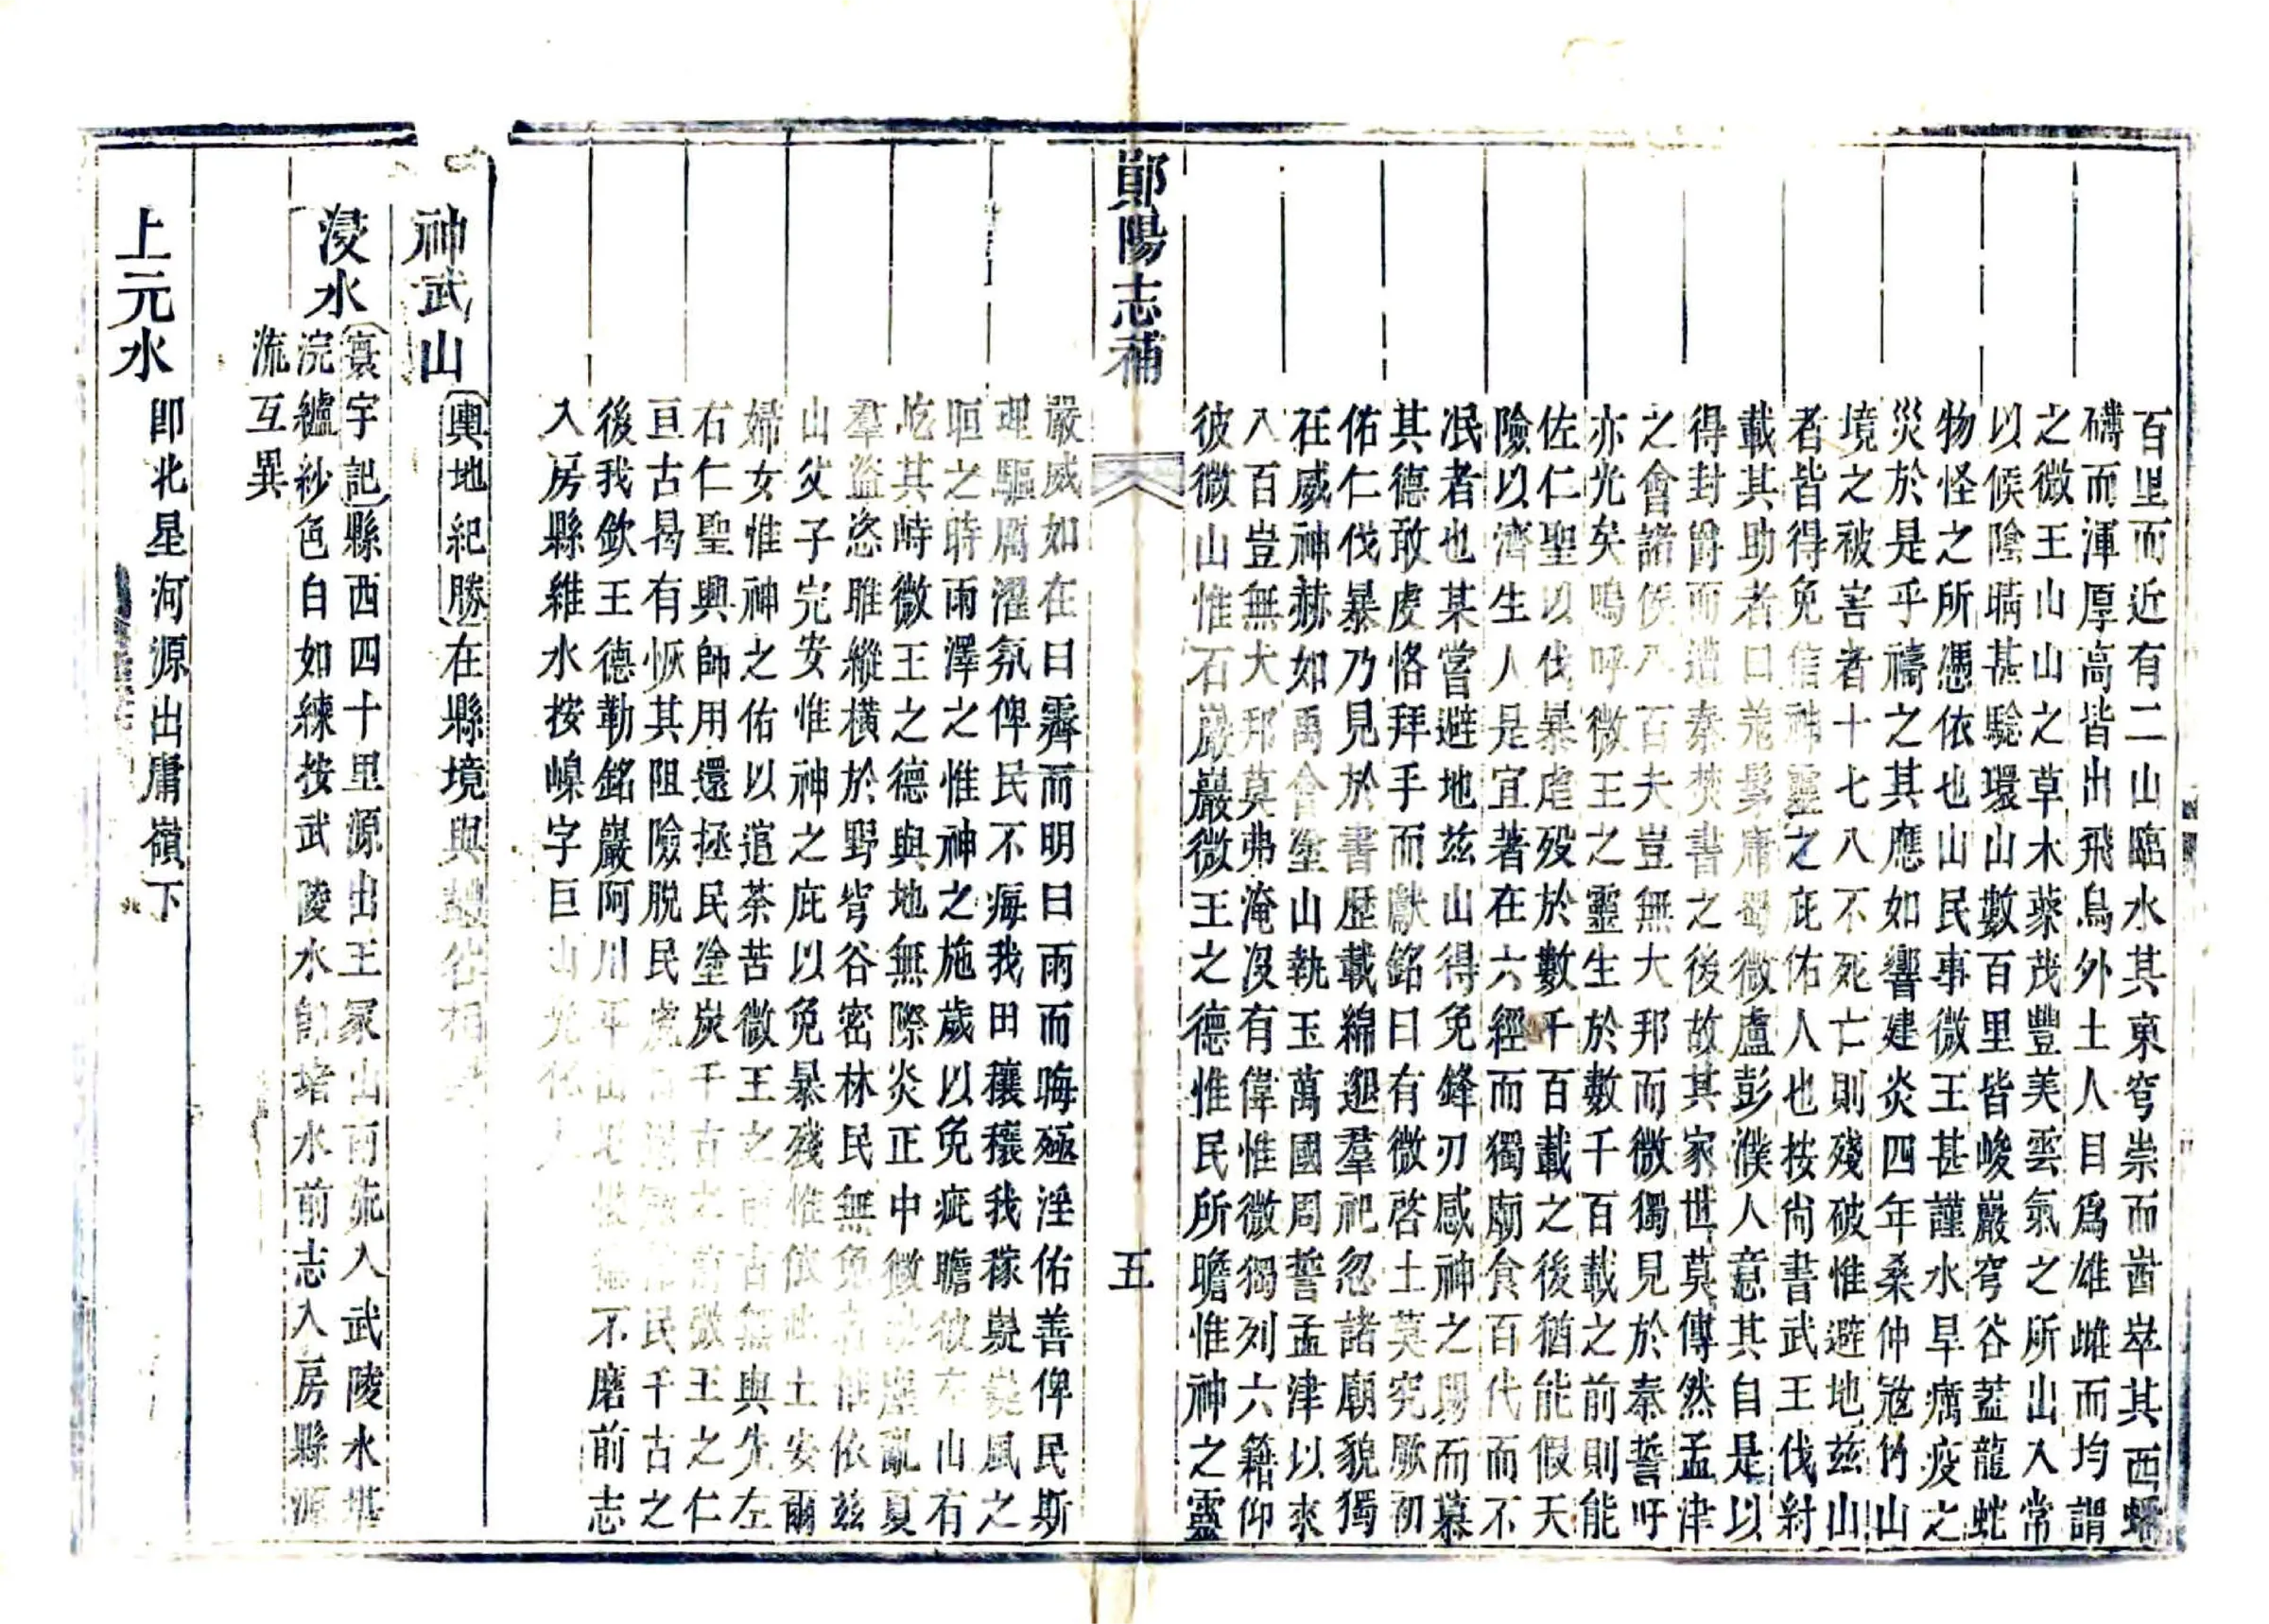 百里而近有二山臨水其東穹崇而崷崒其西蟠
礴而渾厚高皆出飛鳥外土人目爲雄雌而均謂
之微王山山之草木藥茂豐美雲氣之所出入常
以候陰晴甚驗環山數百里皆峻巖穹谷蓋龍蛇
物怪之所憑依也山民事微王甚謹水旱癘疫之
災於是乎禱之其應如響建炎四年桑仲冦竹山
境之被害者十七八不死亡則殘破惟避地兹山
者皆得免信神靈之庇佑人也按尙書武王伐紂
載其助者曰羌髳庸蜀微盧彭濮人意其自是以
得封爵而遭秦焚書之後故其家世莫傳然孟津
之會諸侯八百夫豈無大邦而微獨見於秦誓吁
亦光矣嗚呼微王之靈生於數千百載之前則能
佐仁聖以伐暴虐歿於數千百載之後猶能假天
險以濟生人是宜著在六經而獨廟食百代而不
泯者也某當避地兹山得免鋒刃感神之賜而慕
其德敢虔恪拜手而獻銘曰有微啓土莫究厥初
佑仁伐暴乃見於書歷載綿邈羣祀忽諸廟貌獨
在威神赫如禹會塗山執玉萬國周誓孟津以來
八百豈無大邦莫弗淹沒有偉惟微獨列六籍仰
彼微山惟石巖巖微王之德惟民所瞻惟神之靈
鄖陽志補
五
嚴威如在曰霽而明曰雨而晦殛淫佑善俾民斯
理驅厲濯氛俾民不痗我田穰穰我稼㠜㠜風之
晅之時雨澤之惟神之施歲以免疵瞻彼左山有
屹其峙微王之德與地無際炎正中微 塵亂夏
羣盜恣睢縱橫於野岩谷密林民無免者惟依兹
山父子完安惟神之庇以免暴殘惟依此土安爾
婦女惟神之佑以逭荼苦微王之前古無與先左
右仁聖興師用還拯民塗炭千古之前微王之仁
亘古曷有恢其阻險脱民虎 民千古之
後我欽王德勒銘巖阿川平山 德不磨前志
入房縣維水按嵲字巨山
神武山 輿地紀勝在縣境與
浸水 寰宇記縣西四十里源出王冡山南流入武陵水堪
浣纑紗色白如練按武陵水卽堵水前志入房縣源
流互異
上元水 卽北星河源出庸嶺下